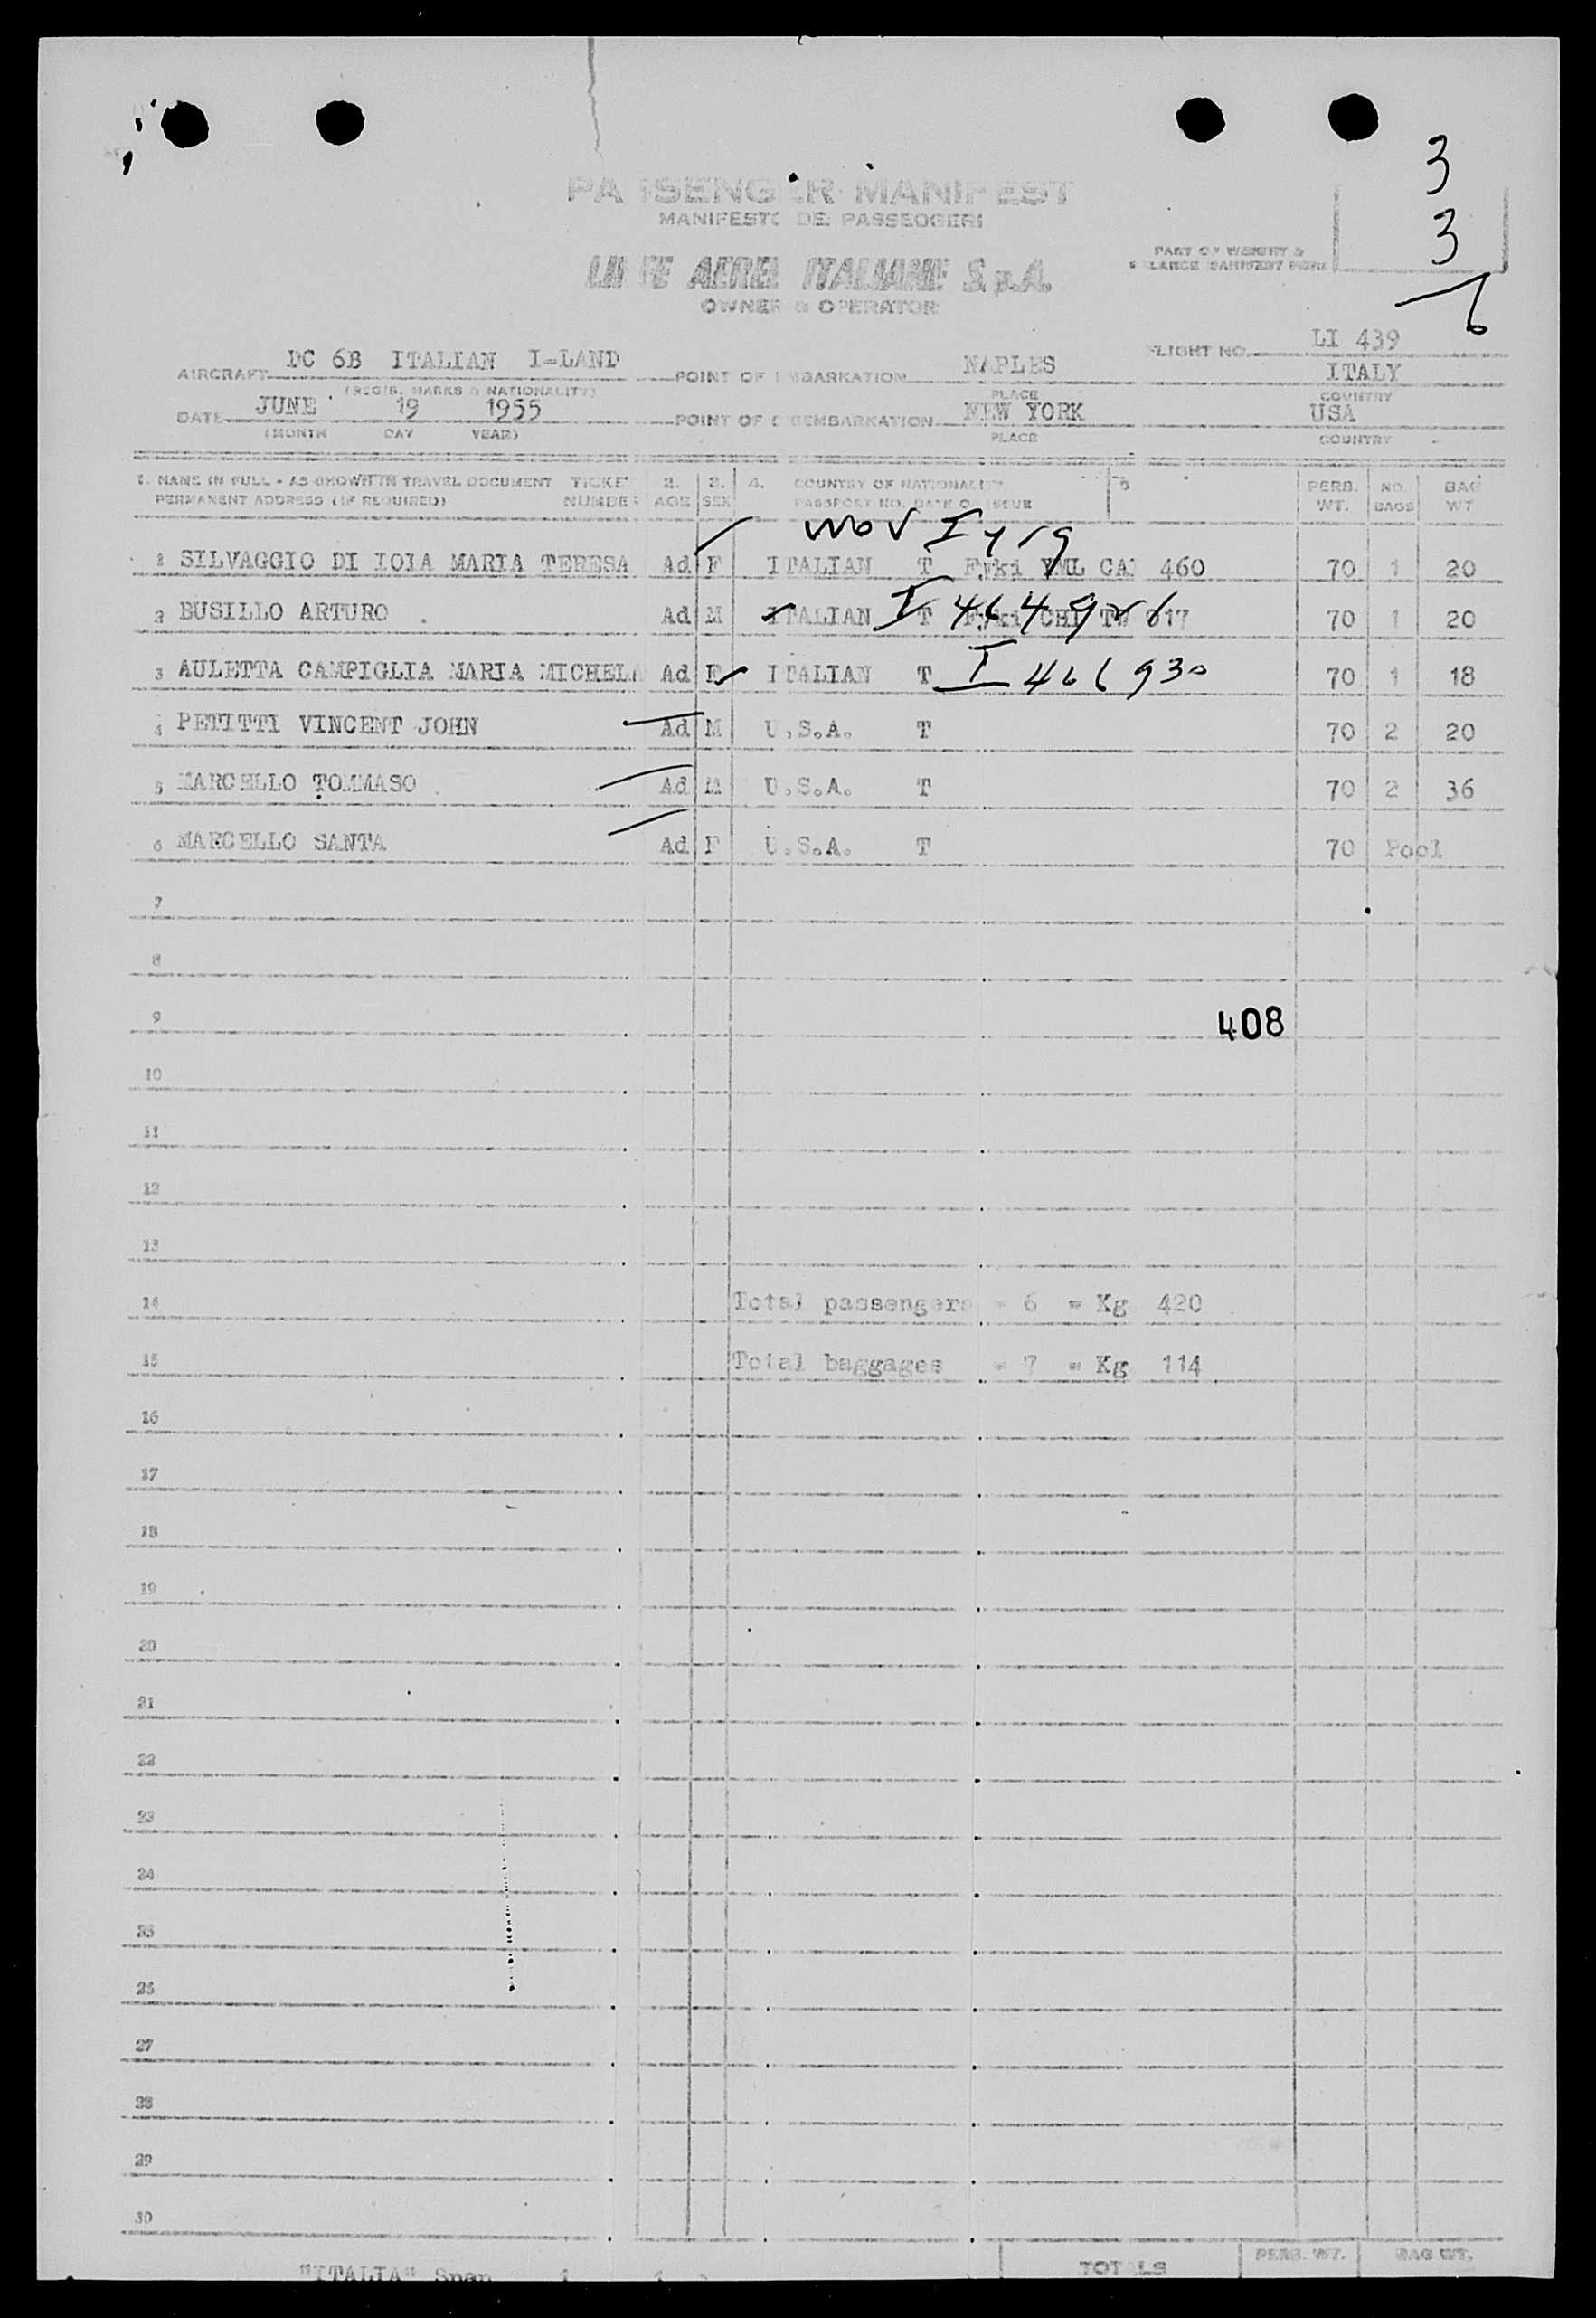 PASSENGER MANIFEST
MANIFESTO DEI PASSEGGERI
LINEE AEREE ITALIANE S.p.A.
OWNER & OPERATOR
PART OF WEIGHT &
BALANCE MANIFEST FORM
3
3
6
AIRCRAFT DC 6B ITALIAN I-LAND POINT OF EMBARKATION NAPLES FLIGHT NO. LI 439
ITALY
(REGIS. MARKS & NATIONALITY) PLACE COUNTRY
DATE JUNE 19 1955 POINT OF DISEMBARKATION NEW YORK USA
(MONTH DAY YEAR) PLACE COUNTRY
1. NAME IN FULL - AS SHOWN IN TRAVEL DOCUMENT TICKET 2. 3. 4. COUNTRY OF NATIONALITY 5 PERS. NO. BAG
PERMANENT ADDRESS (IF REQUIRED) NUMBER AGE SEX PASSPORT NO. DATE OF ISSUE WT. BAGS WT
1 SILVAGGIO DI IOIA MARIA TERESA Ad F ITALIAN T 460 70 1 20
2 BUSILLO ARTURO Ad M ITALIAN T 70 1 20
3 AULETTA CAMPIGLIA MARIA MICHELA Ad F ITALIAN T I 466930 70 1 18
4 PETITTI VINCENT JOHN Ad M U.S.A. T 70 2 20
5 MARCELLO TOMMASO Ad M U.S.A. T 70 2 36
6 MARCELLO SANTA Ad F U.S.A. T 70 Pool
7
8
9 408
10
11
12
13
14 Total passengers = 6 = Kg 420
15 Total baggages = 7 = Kg 114
16
17
18
19
20
21
22
23
24
25
26
27
28
29
30
"ITALIA" TOTALS PERS. WT. BAG WT.